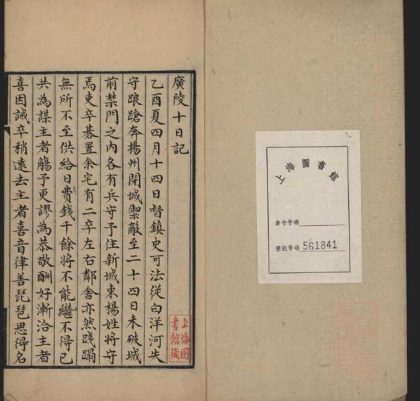 上海圖書館
索書号碼
登記号碼 561841
廣陵十日記
乙酉夏四月十四日督鎮史可法從白洋河失
守踉蹌奔揚州閉城禦敵至二十四日未破城
前禁門之內各有兵守予住新城東楊姓將守
焉吏卒碁置余宅有二卒左右鄰舍亦然踐蹋
無所不至供給日費錢千餘將不能繼不得已
共為謀主者觴予更謬為恭敬酬好漸洽主者
喜因誡卒稍遠去主者喜音律善琵琶思得名
上海圖
書館藏